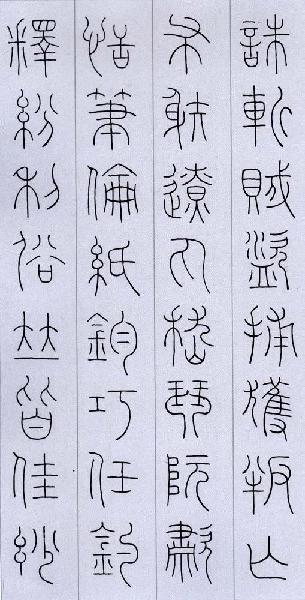 誅斬賊盜捕獲叛亡
布射遼丸嵇琴阮嘯
恬筆倫紙鈞巧任釣
釋紛利俗竝皆佳妙